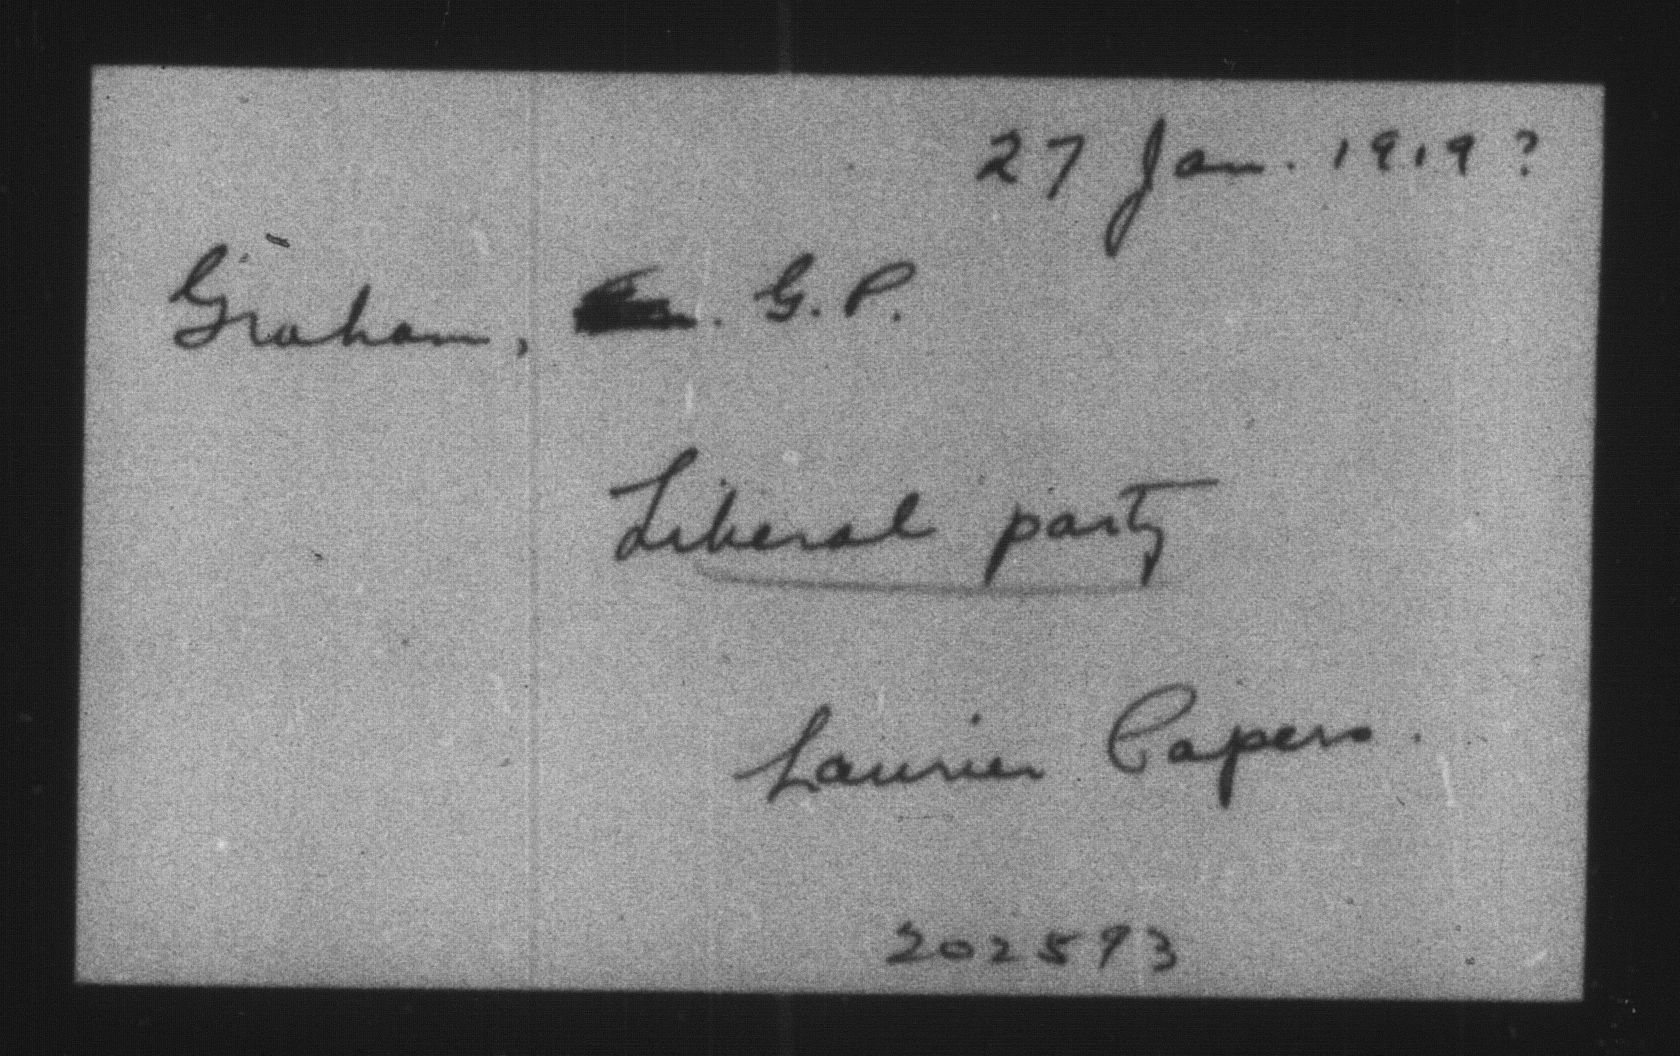 27 Jan. 1919?
Graham, G.P.
Liberal party
Laurier Papers.
202593